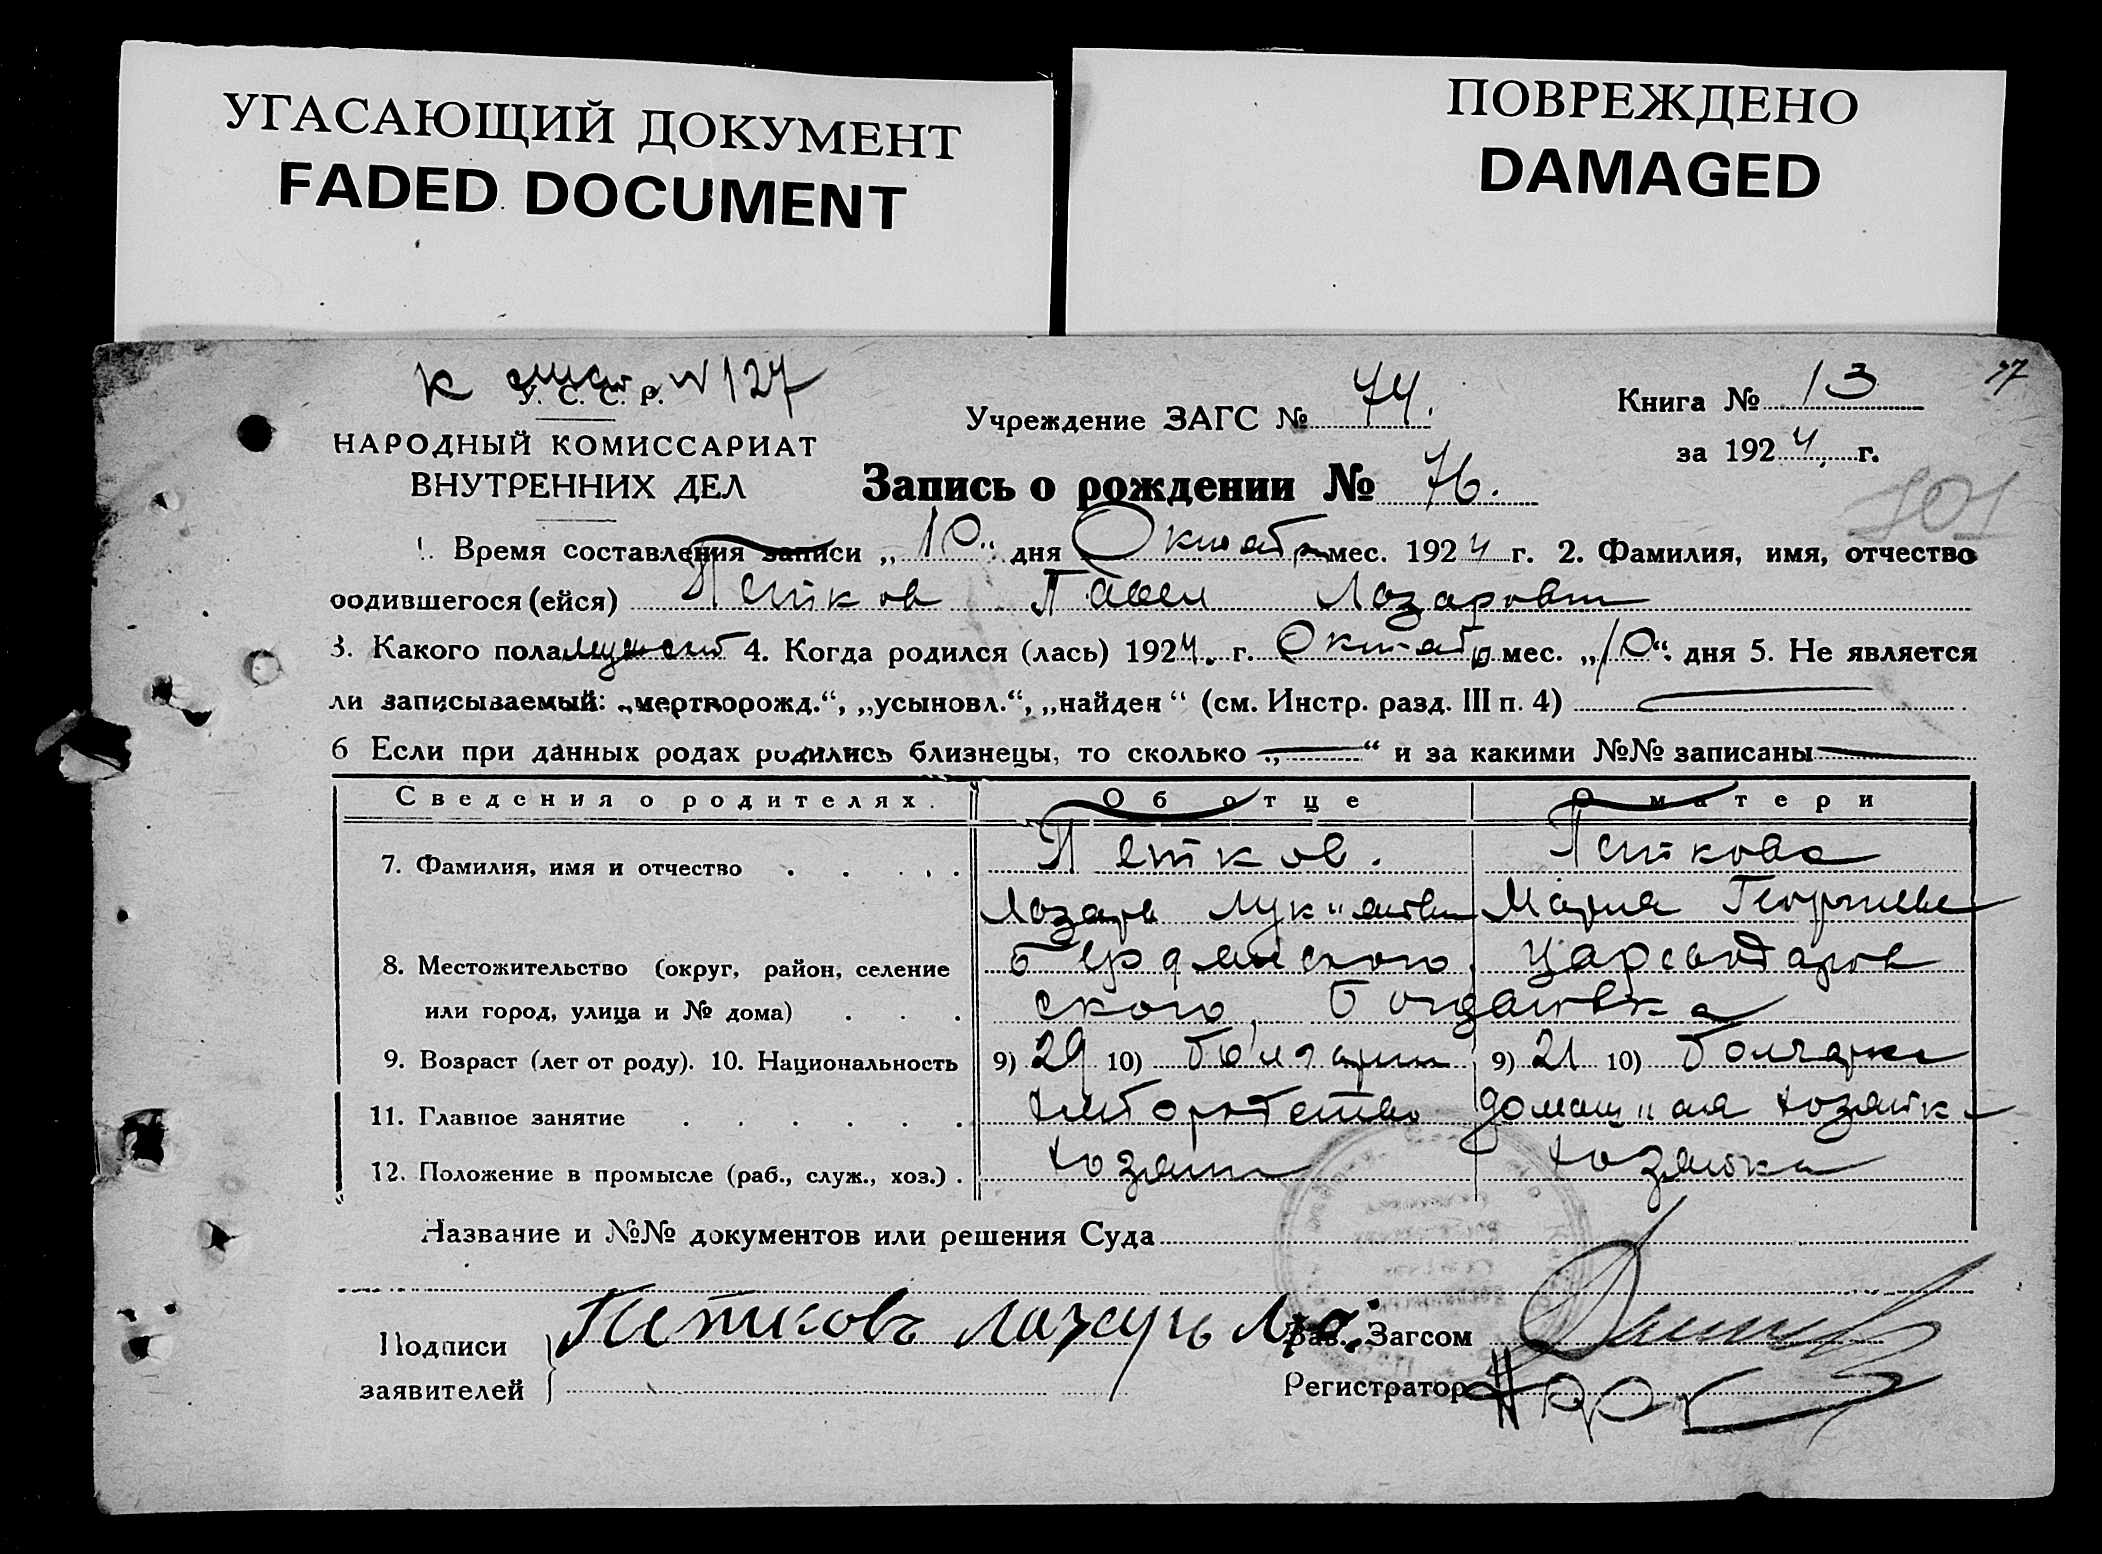 УГАСАЮЩИЙ ДОКУМЕНТ
FADED DOCUMENT
ПОВРЕЖДЕНО
DAMAGED
К N 127
У. С. С. Р.
НАРОДНЫЙ КОМИССАРИАТ
ВНУТРЕННИХ ДЕЛ
Учреждение ЗАГС № 74.
Книга № 13
за 1924 г.
Запись о рождении № 76.
101
1. Время составления записи „10“ дня Октября мес. 1924 г. 2. Фамилия, имя, отчество
родившегося (ейся) Петков Павел Лазарович
3. Какого пола мужской 4. Когда родился (лась) 1924. г. Октября мес. „10“. дня 5. Не является
ли записываемый: „мертворожд.“, „усыновл.“, „найден“ (см. Инстр. разд. III п. 4)
6 Если при данных родах родились близнецы, то сколько „ “ и за какими №№ записаны
Сведения о родителях.
Об отце
О матери
7. Фамилия, имя и отчество
Петков.
Петкова
Лазарь Лукиянович
Мария Георгиевна
8. Местожительство (округ, район, селение
или город, улица и № дома)
Бердянского, Царсводаров
ского, Богдановка
9. Возраст (лет от роду). 10. Национальность
9) 29 10) болгарин
9) 21 10) болгарка
11. Главное занятие
хлеборобство
домашняя хозяйка
12. Положение в промысле (раб., служ., хоз.)
хозяин
хозяйка
Название и №№ документов или решения Суда
Подписи
заявителей
Петковъ Лазаръ
Зав. Загсом
Регистратор